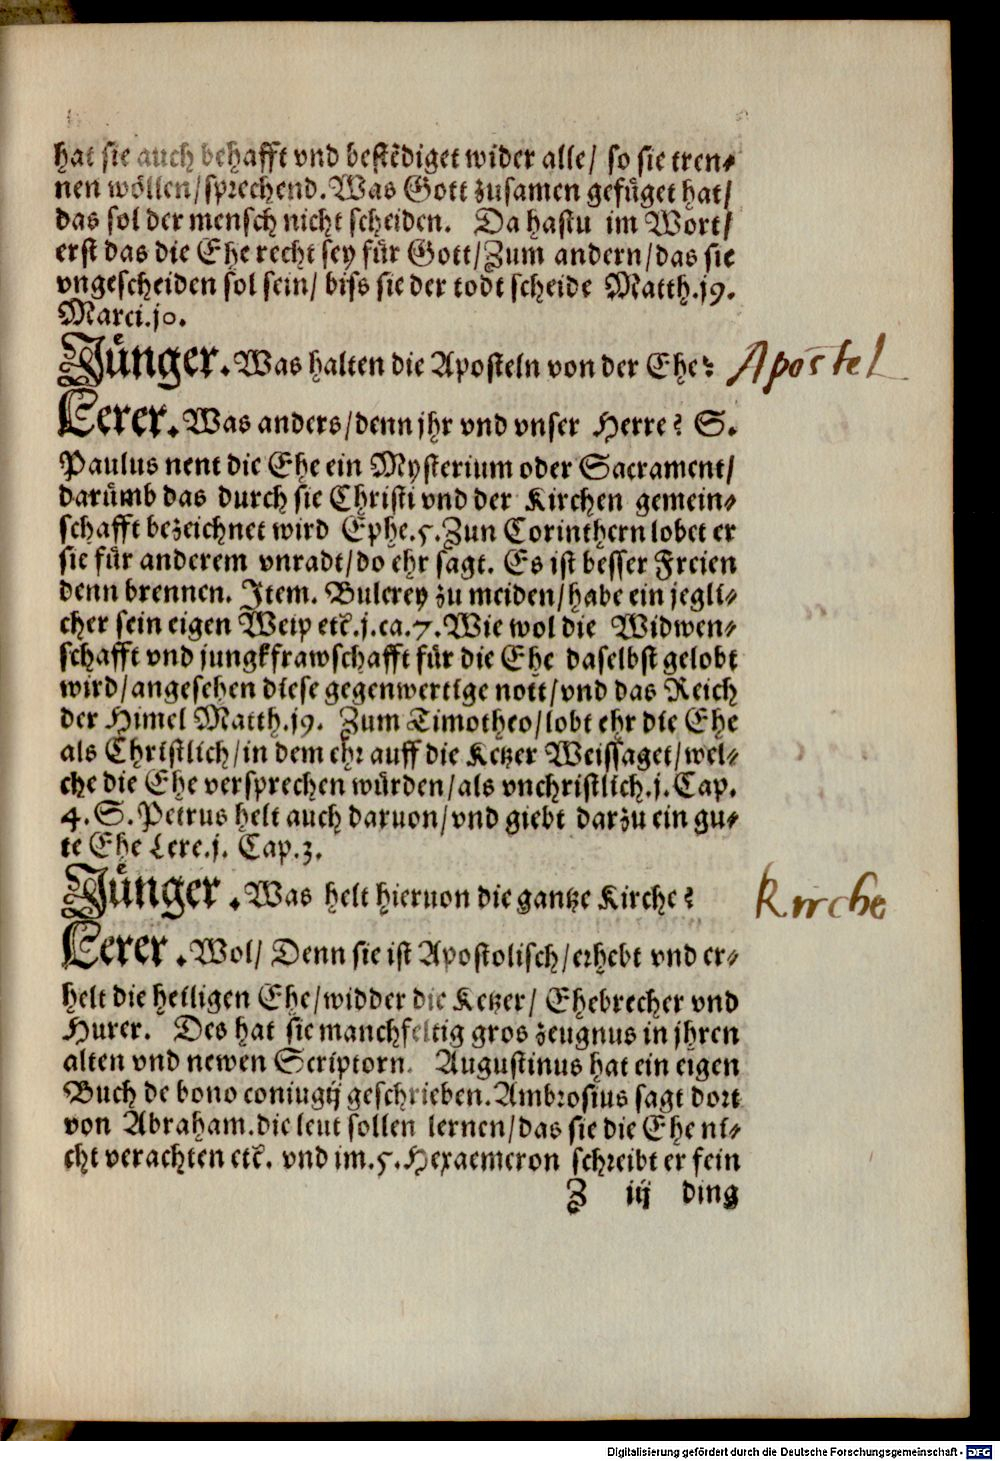 hat sie auch behafft vnd bestediget wider alle/ so sie tren⸗
nen wöllen/sprechend. Was Gott zusamen gefüget hat/
das sol der mensch nicht scheiden. Da hastu im Wort/
erst das die Ehe recht sey für Gott/Zum andern/das sie
vngescheiden sol sein/ biss sie der todt scheide Matth.j9.
Marci.jo.
Jünger. Was halten die Aposteln von der Ehe?
Apostel
Lerer. Was anders/denn jhr vnd vnser Herre? S.
Paulus nent die Ehe ein Mysterium oder Sacrament/
darümb das durch sie Christi vnd der Kirchen gemein⸗
schafft bezeichnet wird Ephe.5. Zun Corinthern lobet er
sie für anderem vnradt/do ehr sagt. Es ist besser Freien
denn brennen. Item. Bulerey zu meiden/habe ein jegli⸗
cher sein eigen Weip etc.j.ca.7. Wie wol die Widwen⸗
schafft vnd jungkfrawschafft für die Ehe daselbst gelobt
wird/angesehen diese gegenwertige nott/vnd das Reich
der Himel Matth.j9. Zum Timotheo/lobt ehr die Ehe
als Christlich/in dem ehr auff die Ketzer Weissaget/wel⸗
che die Ehe versprechen würden/als vnchristlich.j. Cap.
4. S. Petrus helt auch daruon/vnd giebt darzu ein gu⸗
te Ehe Lere.j. Cap.3.
Jünger. Was helt hieruon die gantze Kirche?
Kirche
Lerer. Wol/ Denn sie ist Apostolisch/erhebt vnd er⸗
helt die heiligen Ehe/widder die Ketzer/ Ehebrecher vnd
Hurer. Des hat sie manchfeltig gros zeugnus in jhren
alten vnd newen Scriptorn. Augustinus hat ein eigen
Buch de bono coniugij geschrieben. Ambrosius sagt dort
von Abraham. die leut sollen lernen/das sie die Ehe ni⸗
cht verachten etc. vnd im.5. Hexaemeron schreibt er fein
Z iij ding
Digitalisierung gefördert durch die Deutsche Forschungsgemeinschaft - DFG